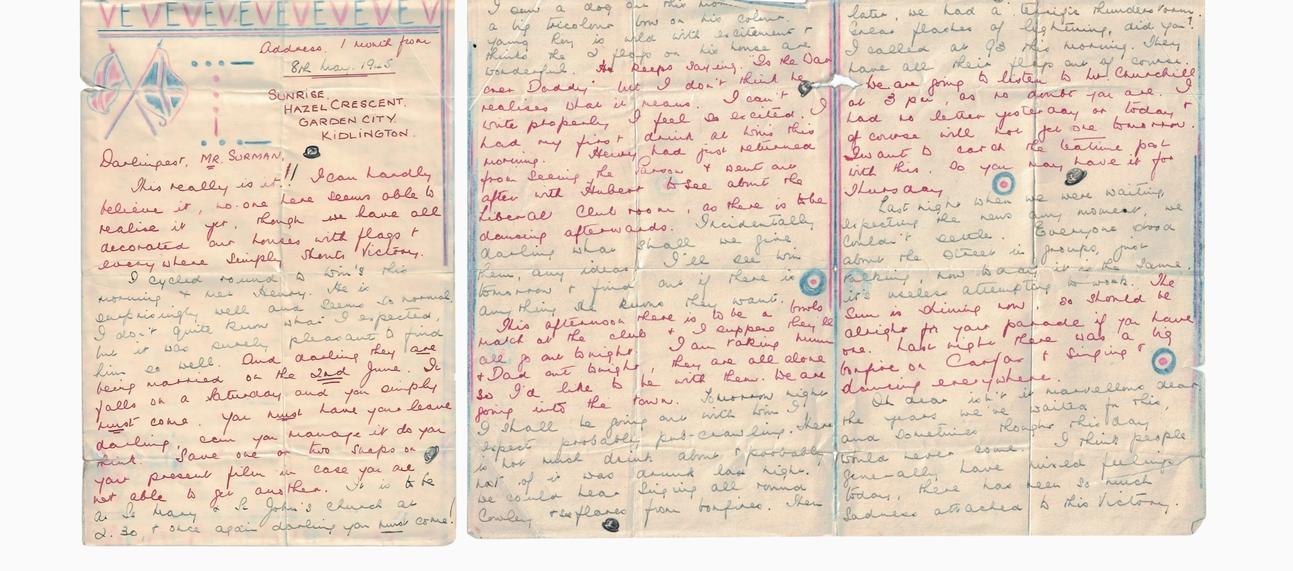 VEVEVEVEVEVEVEV
Address. 1 month from
8th May. 1945
SUNRISE,
HAZEL CRESCENT,
GARDEN CITY,
KIDLINGTON.
Darlingest, MR. SURMAN,
This really is it!! I can hardly
believe it, no-one here seems able to
realise it yet, though we have all
decorated our houses with flags &
everywhere simply shouts Victory.
I cycled round to Win's this
morning & met Henry. He is
surprisingly well and seems so normal.
I don't quite know what I expected,
but it was surely pleasant to find
him so well. And darling they are
being married on the 2nd June. It
falls on a Saturday and you simply
must come. You must have your leave
darling, can you manage it do you
think. Save one or two snaps on
your present film in case you are
not able to get another. It is to be
at St Mary & St John's church at
2.30, & once again darling you must come!
I saw a dog out this
a big tricolour bow on his colour.
young is wild with excitement &
thinks the 2 flags on his house are
wonderful. He keeps saying "Is the War
over Daddy" but I don't think he
realises what it means. I can't
write properly I feel so excited. I
had my first drink at Wins this
morning. Henry had just returned
from seeing the Parson & went out
after with Hubert to see about the
Liberal Club room, as there is to be
dancing afterwards. Incidentally
darling what shall we give
them, any ideas. I'll see Win
tomorrow & find out if there is
anything she knows they want.
This afternoon there is to be a bowls
match at the club & I suppose they'll
all go out tonight. I am taking Mum
& Dad out tonight, they are all alone
so I'd like to be with them. We are
going into the town. Tomorrow night
I shall be going out with Win I
expect probably pub-crawling. There
is not much drink about & probably
half of it was drunk last night.
We could hear singing all round
Cowley & see flares from bonfires. Then
later, we had a terrific thunderstorm.
Great flashes of lightning, did you?
I called at 93 this morning. They
have all their flags out of course.
We are going to listen to Mr Churchill
at 3 pm, as no doubt you are. I
had no letter yesterday or today &
of course will not get one tomorrow.
I want to catch the teatime post
with this. So you may have it for
Thursday.
Last night when we were waiting,
expecting the news any moment, we
couldn't settle. Everyone stood
about the street in groups, just
talking, now today it is the same.
it's useless attempting to work. The
Sun is shining now, so should be
alright for your parade if you have
one. Last night there was a big
bonfire on Carfax & singing &
dancing everywhere.
Oh dear isn't it marvellous dear,
the years we've waited for this,
and sometimes thought this day
would never come. I think people
generally have mixed feelings
today, there has been so much
sadness attached to this Victory.